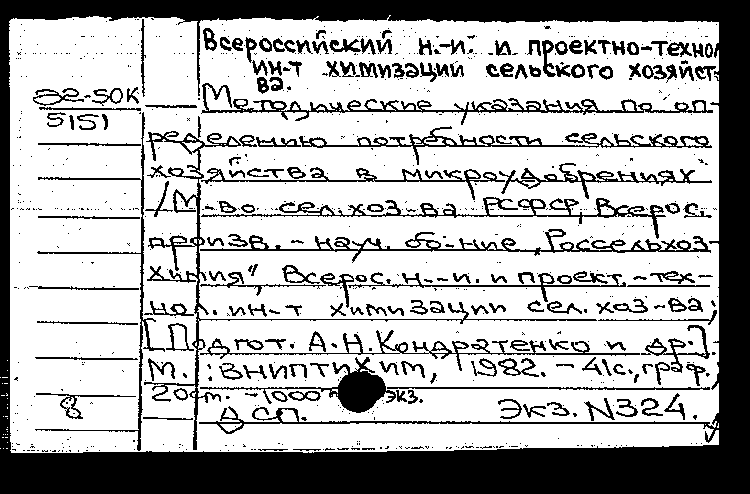 Всероссийский н.-и. и проектно-технол
ин-т химизации сельского хозяйст-
ва.
82-50К
5151
Методические указания по оп-
ределению потребности сельского
хозяйства в микроудобрениях
/М-во сел.хоз-ва РСФСР, Всерос.
произв.-науч. об-ние „Россельхоз-
химия", Всерос. н.-и. и проект.-тех-
нол. ин-т химизации сел. хоз-ва;
[Подгот. А.Н.Кондратенко и др.].-
М.: ВНИПТИХИМ, 1982. - 41с., граф.;
20см. - 1000 экз.
8
ДСП. Экз. N324.